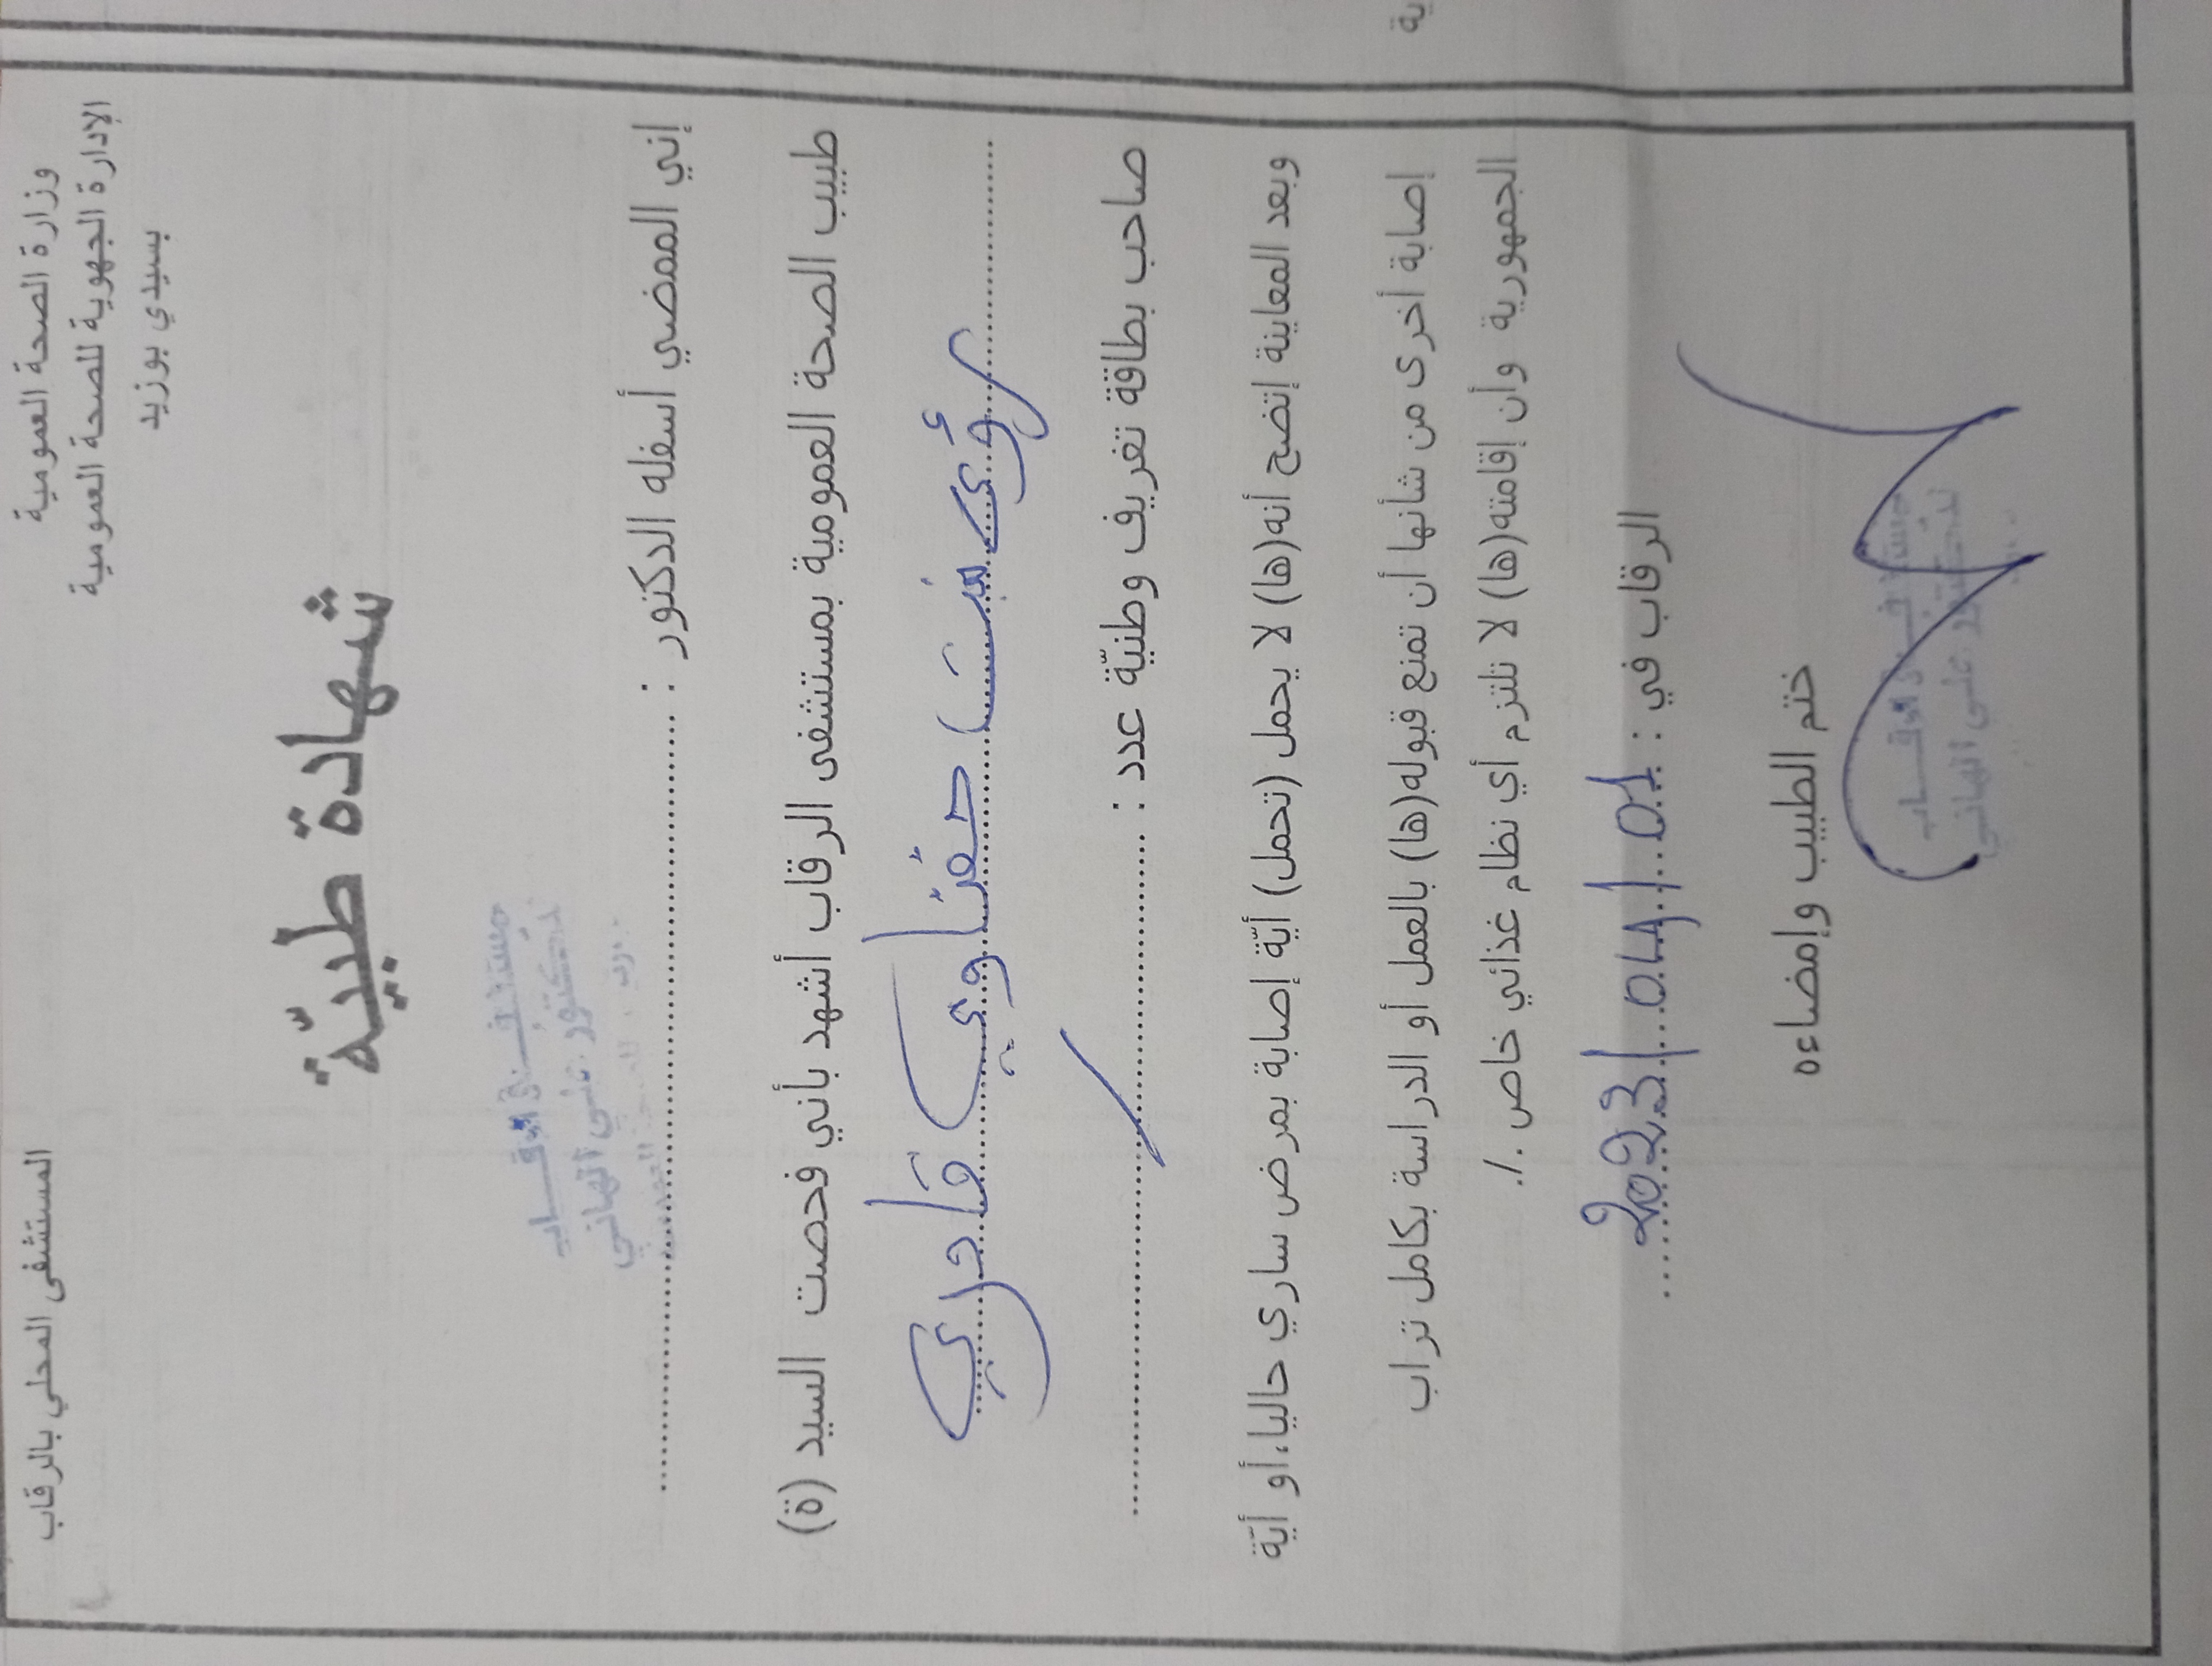 وزارة الصحة العمومية
الإدارة الجهوية للصحة العمومية
بسيدي بوزيد
المستشفى المحلي بالرقاب
شهادة طبيّة
إني الممضي أسفله الدكتور : ............................................................
طبيب الصحة العمومية بمستشفى الرقاب أشهد بأني فحصت السيد (ة)
رؤى بنت حفناوي قادري
صاحب بطاقة تعريف وطنيّة عدد : ............................................................
وبعد المعاينة إتضح أنه(ها) لا يحمل (تحمل) أيّة إصابة بمرض ساري حاليا، أو أيّة
إصابة أخرى من شأنها أن تمنع قبوله(ها) بالعمل أو الدراسة بكامل تراب
الجمهورية وأن إقامته(ها) لا تلتزم أي نظام غذائي خاص ./.
الرقاب في : 2023/04/01
ختم الطبيب وإمضاءه